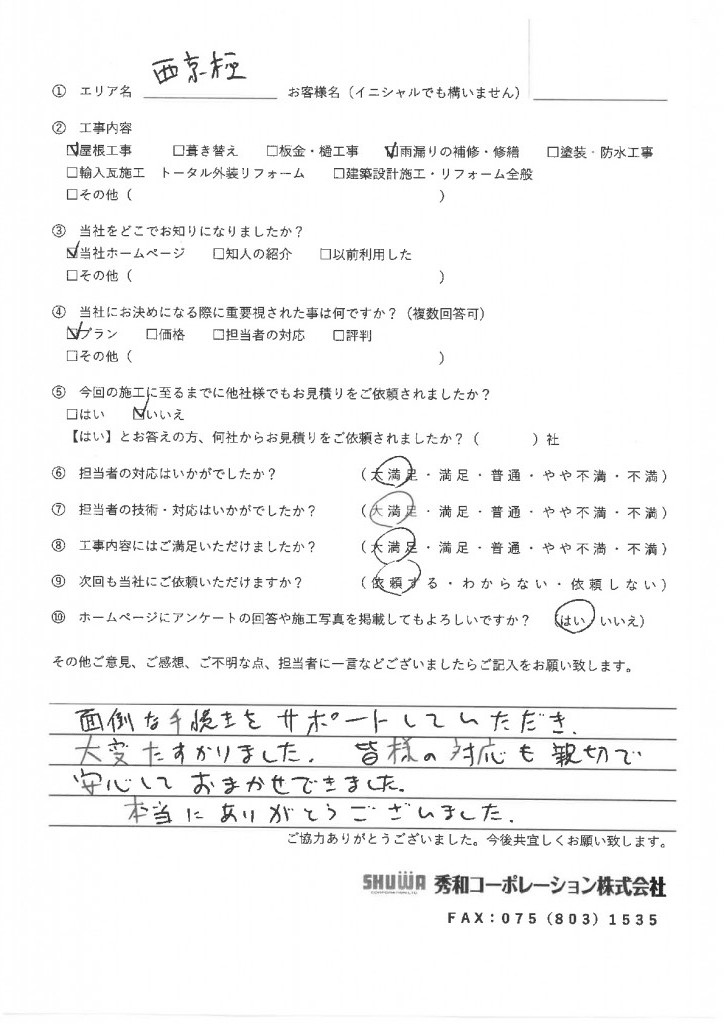 ① エリア名 西京極 お客様名（イニシャルでも構いません）
② 工事内容
☑屋根工事 □葺き替え □板金・樋工事 ☑雨漏りの補修・修繕 □塗装・防水工事
□輸入瓦施工 トータル外装リフォーム □建築設計施工・リフォーム全般
□その他（ ）
③ 当社をどこでお知りになりましたか？
☑当社ホームページ □知人の紹介 □以前利用した
□その他（ ）
④ 当社にお決めになる際に重要視された事は何ですか？（複数回答可）
☑プラン □価格 □担当者の対応 □評判
□その他（ ）
⑤ 今回の施工に至るまでに他社様でもお見積りをご依頼されましたか？
□はい ☑いいえ
【はい】とお答えの方、何社からお見積りをご依頼されましたか？（ ）社
⑥ 担当者の対応はいかがでしたか？ （大満足・満足・普通・やや不満・不満）
⑦ 担当者の技術・対応はいかがでしたか？ （大満足・満足・普通・やや不満・不満）
⑧ 工事内容にはご満足いただけましたか？ （大満足・満足・普通・やや不満・不満）
⑨ 次回も当社にご依頼いただけますか？ （依頼する・わからない・依頼しない）
⑩ ホームページにアンケートの回答や施工写真を掲載してもよろしいですか？ （はい・いいえ）
その他ご意見、ご感想、ご不明な点、担当者に一言などございましたらご記入をお願い致します。
面倒な手続きをサポートしていただき、
大変たすかりました。皆様の対応も親切で
安心しておまかせできました。
本当にありがとうございました。
ご協力ありがとうございました。今後共宜しくお願い致します。
SHUWA 秀和コーポレーション株式会社
FAX：075（803）1535